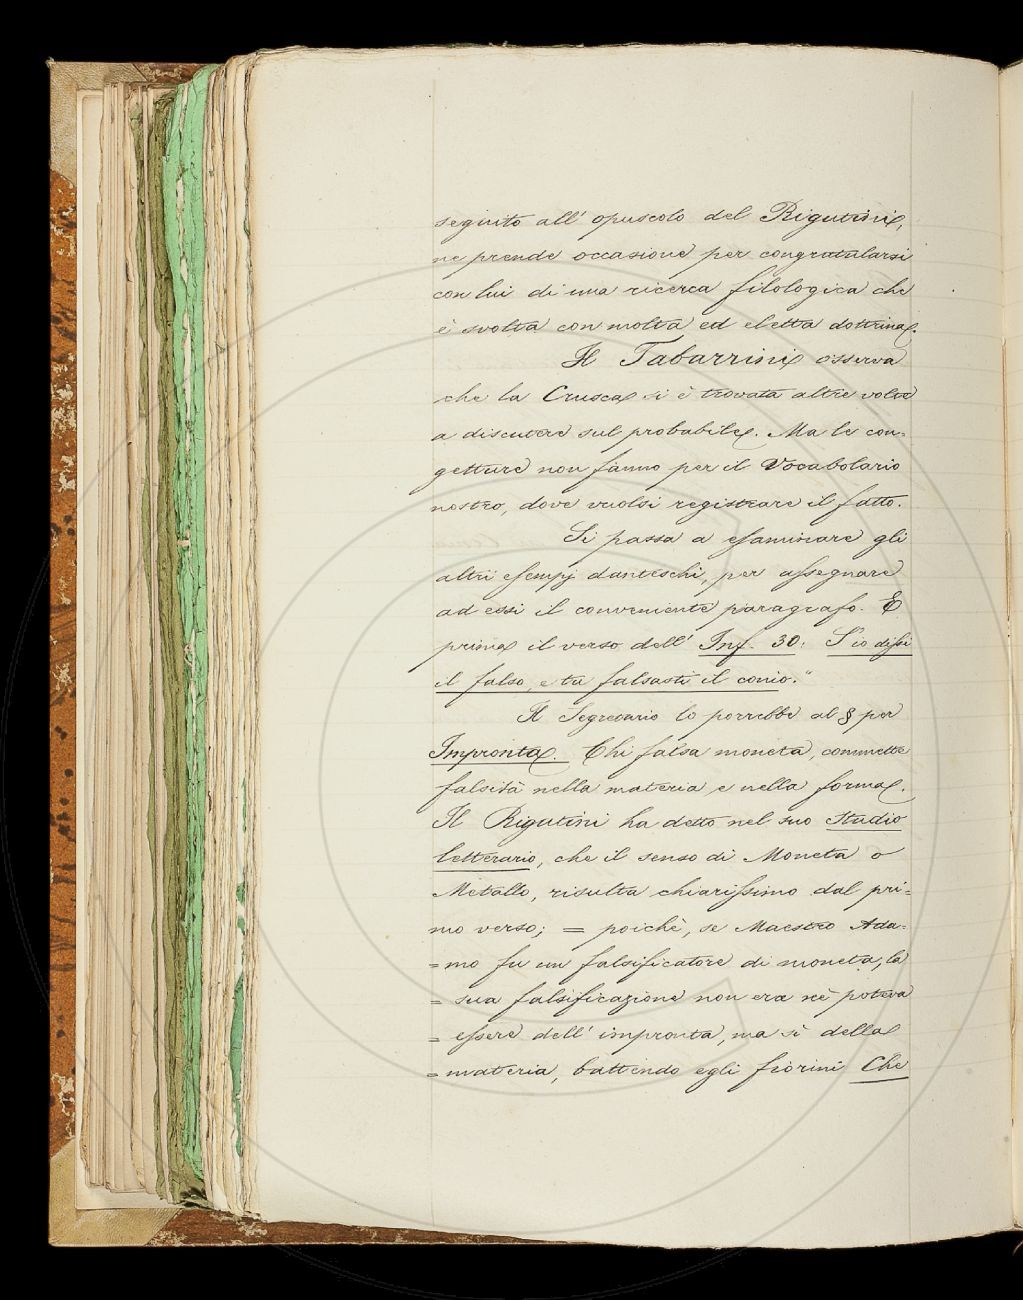 seguito all' opuscolo del Rigutini,
ne prende occasione per congratularsi
con lui di una ricerca filologica che
è svolta con molta ed eletta dottrina.
Il Tabarrini osserva
che la Crusca si è trovata altre volte
a discutere sul probabile. Ma le con-
getture non fanno per il Vocabolario
nostro, dove vuolsi registrare il fatto.
Si passa a esaminare gli
altri esempj danteschi, per assegnare
ad essi il conveniente paragrafo. E
prima il verso dell' Inf. 30: S'io dissi
il falso, e tu falsasti il conio."
Il Segretario lo porrebbe al § per
Impronta. Chi falsa moneta, commette
falsità nella materia e nella forma.
Il Rigutini ha detto nel suo Studio
letterario, che il senso di Moneta o
Metallo, risulta chiarissimo dal pri=
mo verso; = poichè, se Maestro Ada=
=mo fu un falsificatore di moneta, la
= sua falsificazione non era nè poteva
= essere dell' impronta, ma sì della
= materia, battendo egli fiorini Che